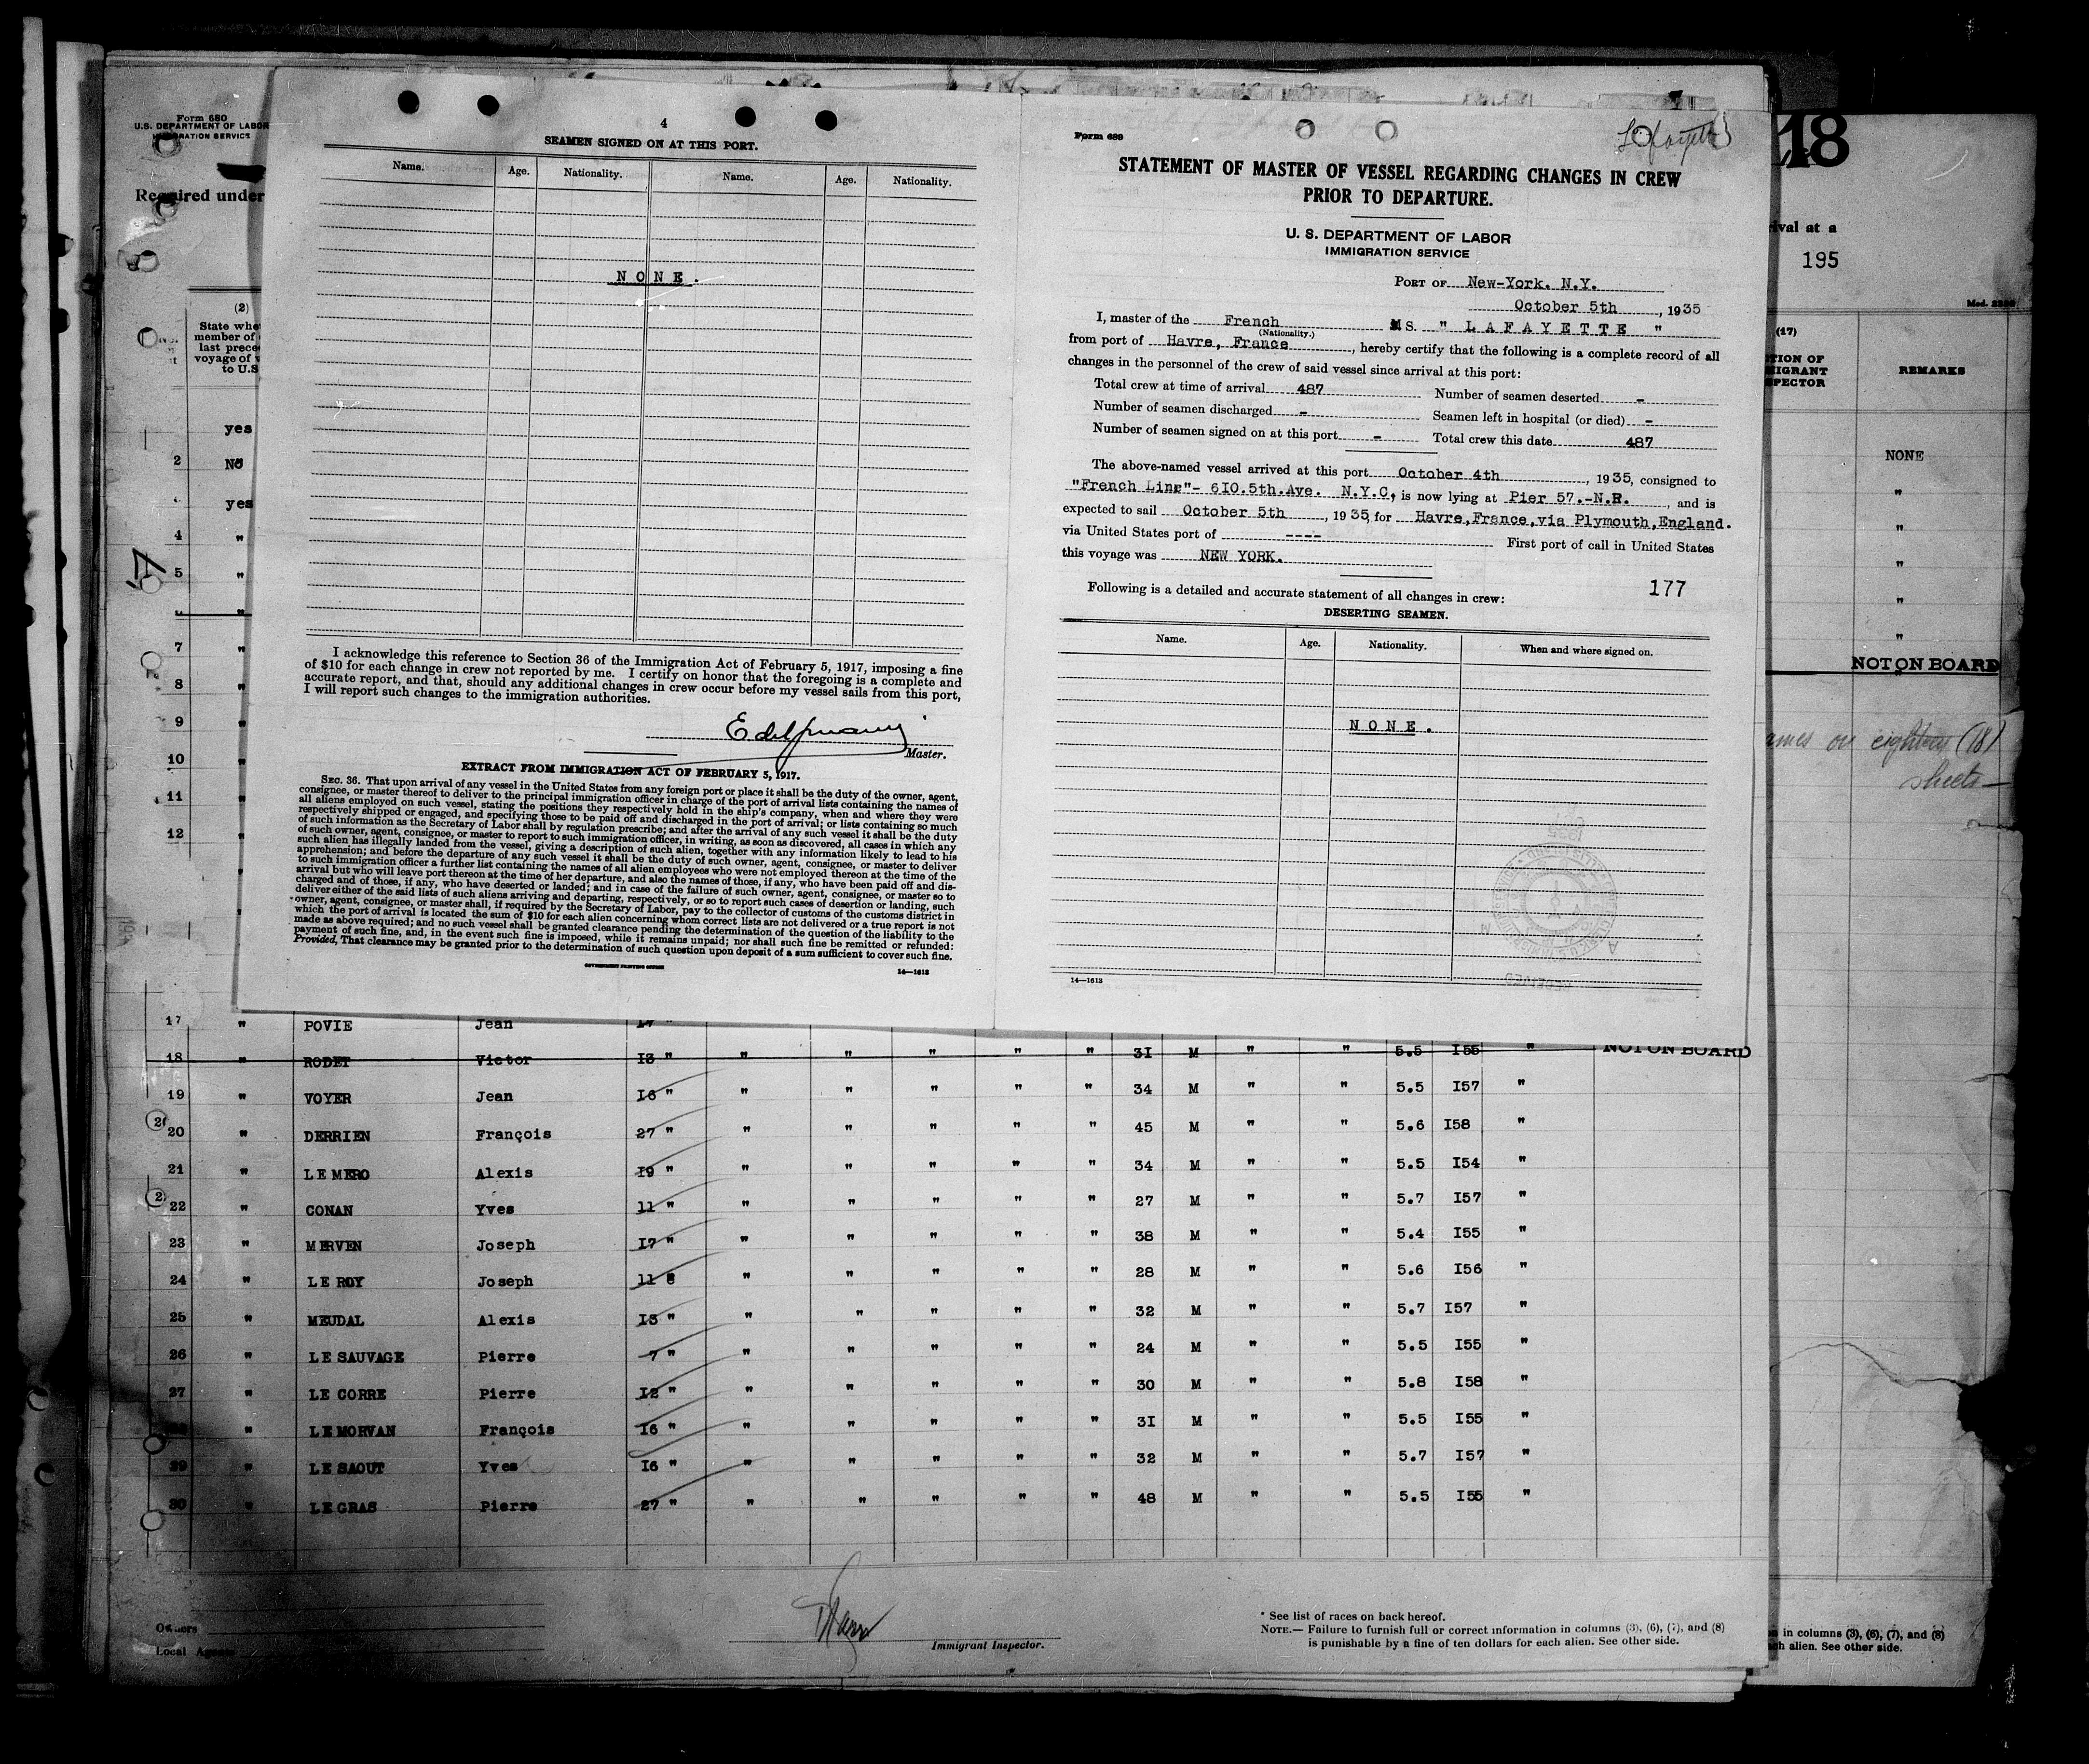 Form 680
U.S. DEPARTMENT OF LABOR
IMMIGRATION SERVICE
Required under
(2)
State whe
member of
last prece
voyage of
to U.S
yes
2 No
yes
4 "
5 "
"
7 "
8 "
9 "
10 "
11 "
12 "
4
SEAMEN SIGNED ON AT THIS PORT.
Name. Age. Nationality. Name. Age. Nationality.
NONE.
I acknowledge this reference to Section 36 of the Immigration Act of February 5, 1917, imposing a fine
of $10 for each change in crew not reported by me. I certify on honor that the foregoing is a complete and
accurate report, and that, should any additional changes in crew occur before my vessel sails from this port,
I will report such changes to the immigration authorities.
Master.
EXTRACT FROM IMMIGRATION ACT OF FEBRUARY 5, 1917.
SEC. 36. That upon arrival of any vessel in the United States from any foreign port or place it shall be the duty of the owner, agent,
consignee, or master thereof to deliver to the principal immigration officer in charge of the port of arrival lists containing the names of
all aliens employed on such vessel, stating the positions they respectively hold in the ship's company, when and where they were
respectively shipped or engaged, and specifying those to be paid off and discharged in the port of arrival; or lists containing so much
of such information as the Secretary of Labor shall by regulation prescribe; and after the arrival of any such vessel it shall be the duty
of such owner, agent, consignee, or master to report to such immigration officer, in writing, as soon as discovered, all cases in which any
such alien has illegally landed from the vessel, giving a description of such alien, together with any information likely to lead to his
apprehension; and before the departure of any such vessel it shall be the duty of such owner, agent, consignee, or master to deliver
to such immigration officer a further list containing the names of all alien employees who were not employed thereon at the time of the
arrival but who will leave port thereon at the time of her departure, and also the names of those, if any, who have been paid off and dis-
charged and of those, if any, who have deserted or landed; and in case of the failure of such owner, agent, consignee, or master so to
deliver either of the said lists of such aliens arriving and departing, respectively, or so to report such cases of desertion or landing, such
owner, agent, consignee, or master shall, if required by the Secretary of Labor, pay to the collector of customs of the customs district in
which the port of arrival is located the sum of $10 for each alien concerning whom correct lists are not delivered or a true report is not
made as above required; and no such vessel shall be granted clearance pending the determination of the question of the liability to the
payment of such fine, and, in the event such fine is imposed, while it remains unpaid; nor shall such fine be remitted or refunded:
Provided, That clearance may be granted prior to the determination of such question upon deposit of a sum sufficient to cover such fine.
GOVERNMENT PRINTING OFFICE 14—1613
Form 689
Lafayette
STATEMENT OF MASTER OF VESSEL REGARDING CHANGES IN CREW
PRIOR TO DEPARTURE.
U. S. DEPARTMENT OF LABOR
IMMIGRATION SERVICE
PORT OF New-York. N.Y.
October 5th, 1935
I, master of the French MS. " LAFAYETTE "
(Nationality.)
from port of Havre, France, hereby certify that the following is a complete record of all
changes in the personnel of the crew of said vessel since arrival at this port:
Total crew at time of arrival 487 Number of seamen deserted -
Number of seamen discharged - Seamen left in hospital (or died) -
Number of seamen signed on at this port - Total crew this date 487
The above-named vessel arrived at this port October 4th, 1935, consigned to
"French Line"- 6I0.5th.Ave. N.Y.C, is now lying at Pier 57.-N.R., and is
expected to sail October 5th, 1935, for Havre,France,via Plymouth,England.
via United States port of ---- First port of call in United States
this voyage was NEW YORK.
177
Following is a detailed and accurate statement of all changes in crew:
DESERTING SEAMEN.
Name. Age. Nationality. When and where signed on.
NONE.
14—1613
18
ival at a
195
(17)
TION OF
MIGRANT
SPECTOR
REMARKS
NONE
"
"
"
"
"
NOT ON BOARD
ames on eighteen (18)
sheets—
17 " POVIE Jean
18 " RODET Victor I3 " " " " " " 3I M " " 5.5 I55 " NOT ON BOARD
19 " VOYER Jean I6 " " " " " " 34 M " " 5.5 I57 "
20 " DERRIEN François 27 " " " " " " 45 M " " 5.6 I58 "
21 " LE MERO Alexis I9 " " " " " " 34 M " " 5.5 I54 "
22 " CONAN Yves 11 " " " " " " 27 M " " 5.7 I57 "
23 " MERVEN Joseph I7 " " " " " " 38 M " " 5.4 I55 "
24 " LE ROY Joseph 11 " " " " " 28 M " " 5.6 I56 "
25 " MEUDAL Alexis I3 " " " " " " 32 M " " 5.7 I57 "
26 " LE SAUVAGE Pierre 7 " " " " " " 24 M " " 5.5 I55 "
27 " LE CORRE Pierre I2 " " " " " " 30 M " " 5.8 I58 "
" LE MORVAN François I6 " " " " " " 3I M " " 5.5 I55 "
29 " LE SAOUT Yves I6 " " " " " " 32 M " " 5.7 I57 "
30 " LE GRAS Pierre 27 " " " " " " 48 M " " 5.5 I55 "
Owners
Local Agents
Immigrant Inspector.
* See list of races on back hereof.
NOTE.— Failure to furnish full or correct information in columns (3), (6), (7), and (8)
is punishable by a fine of ten dollars for each alien. See other side.
in columns (3), (6), (7), and (8)
ch alien. See other side.